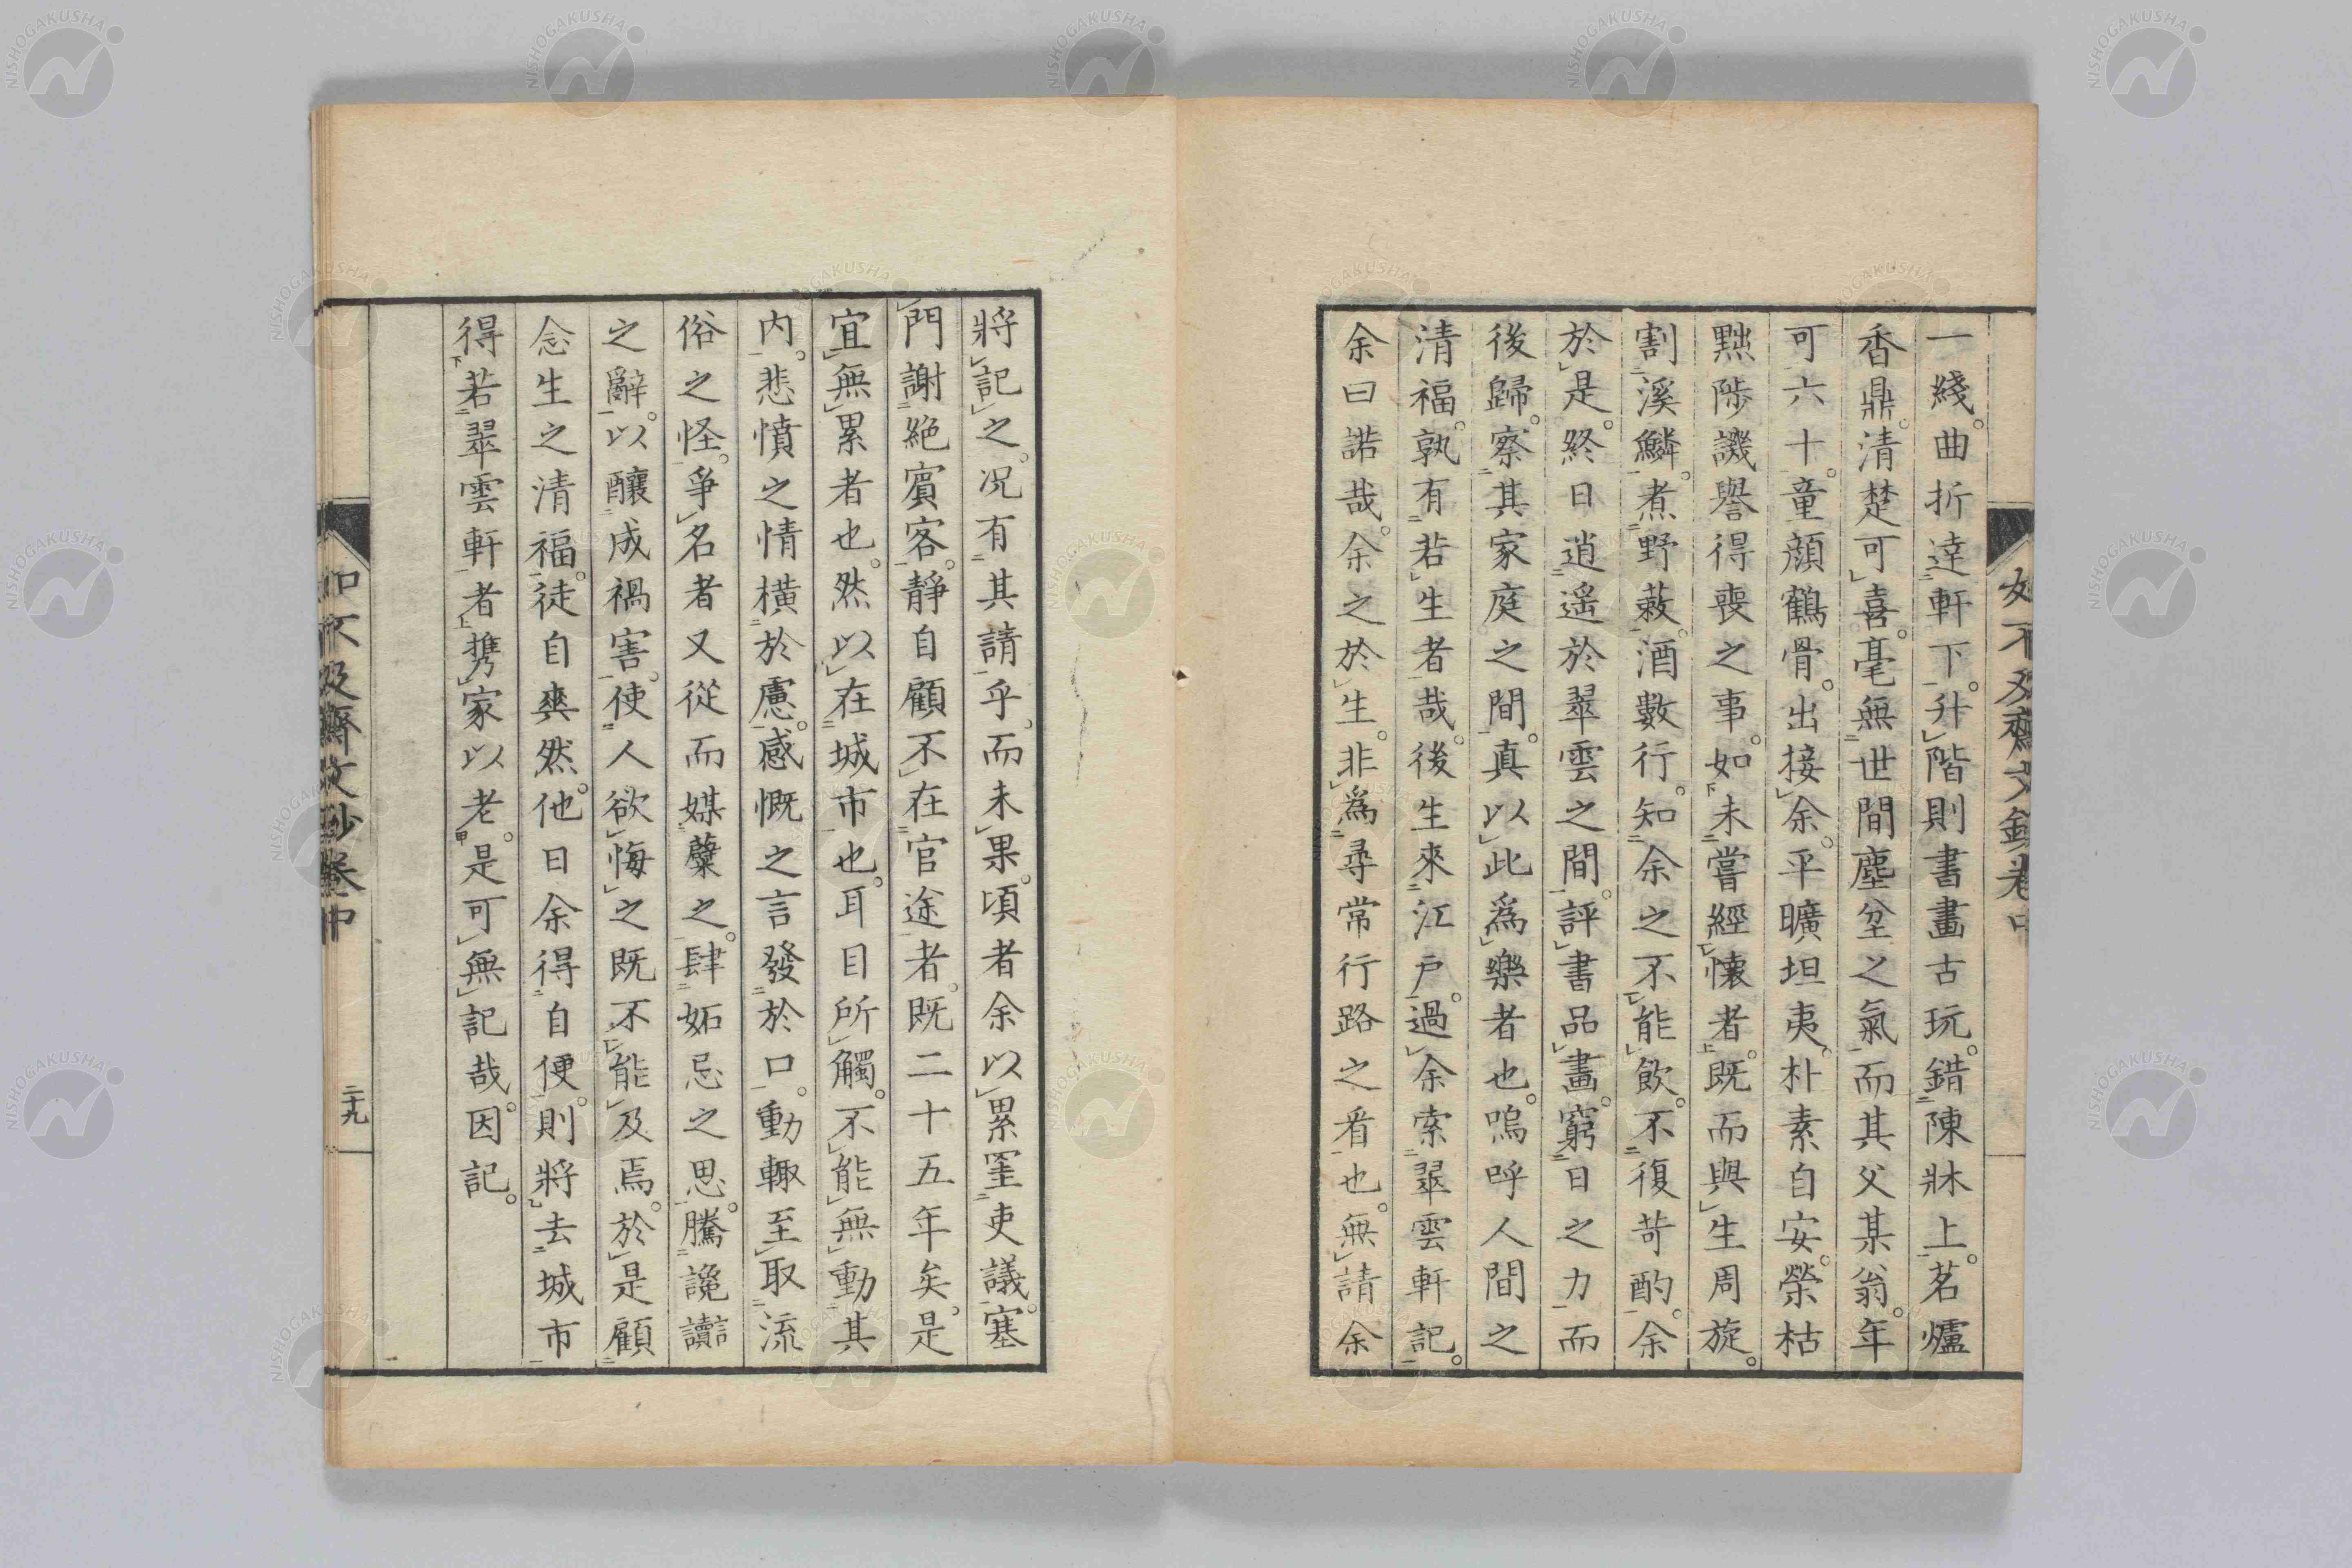 一綫。曲折達軒下。升階則書畫古玩。錯陳牀上。茗爐
香鼎。清楚可喜。毫無世間塵坌之氣。而其父某翁。年
可六十。童顔鶴骨。出接余。平曠坦夷。朴素自安。榮枯
黜陟譏譽得喪之事。如未嘗經懷者。既而與生周旋。
割溪鱗。煮野蔌。酒數行。知余之不能飲。不復苛酌。余
於是。終日逍遥於翠雲之間。評書品畫。窮日之力而
後歸。察其家庭之間。真以此為樂者也。嗚呼人間之
清福。孰有若生者哉。後生來江戸。過余索翠雲軒記。
余曰諾哉。余之於生。非為尋常行路之看也。無請余
將記之。况有其請乎。而未果。頃者余以累罣吏議。塞
門謝絶賓客。靜自顧不在官途者。既二十五年矣。是
宜無累者也。然以在城市也。耳目所觸。不能無動其
内。悲憤之情横於慮。感慨之言發於口。動輙至取流
俗之怪。爭名者又從而媒蘖之。肆妬忌之思。騰讒讟
之辭。以釀成禍害。使人欲悔之既不能及焉。於是顧
念生之清福。徒自爽然。他日余得自便。則將去城市
得若翠雲軒者。携家以老。是可無記哉。因記。
如不及齋文鈔卷中
二十九